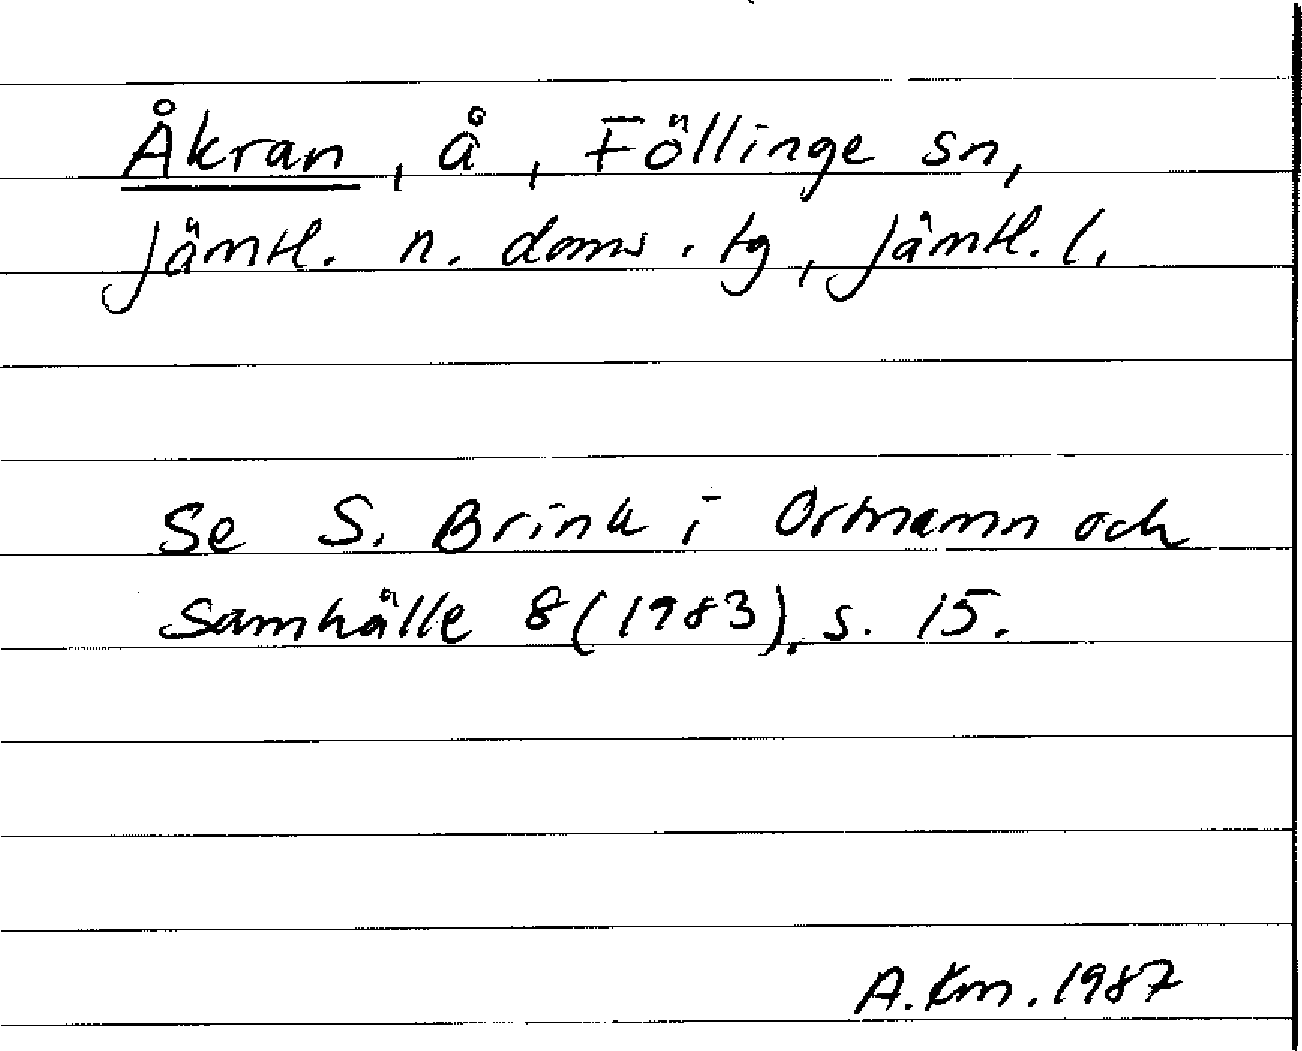 Åkran, å, Föllinge sn,
Jämtl. n. doms. tg, Jämtl. l.
Se S. Brink i Ortnamn och
Samhälle 8 (1983), s. 15.
A. Km. 1987